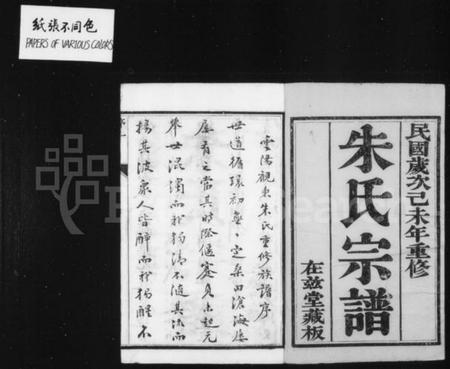 紙張不同色
PAPERS OF VARIOUS COLORS
民國歲次己未年重修
朱氏宗譜
在茲堂藏板
雲陽觀東朱氏重修族譜序
世道循環初無定桑田滄海屢
屢有之當其時際偃蹇貞未起元
舉世混濁而我獨清不隨其流而
揚其波衆人皆醉而我獨醒不